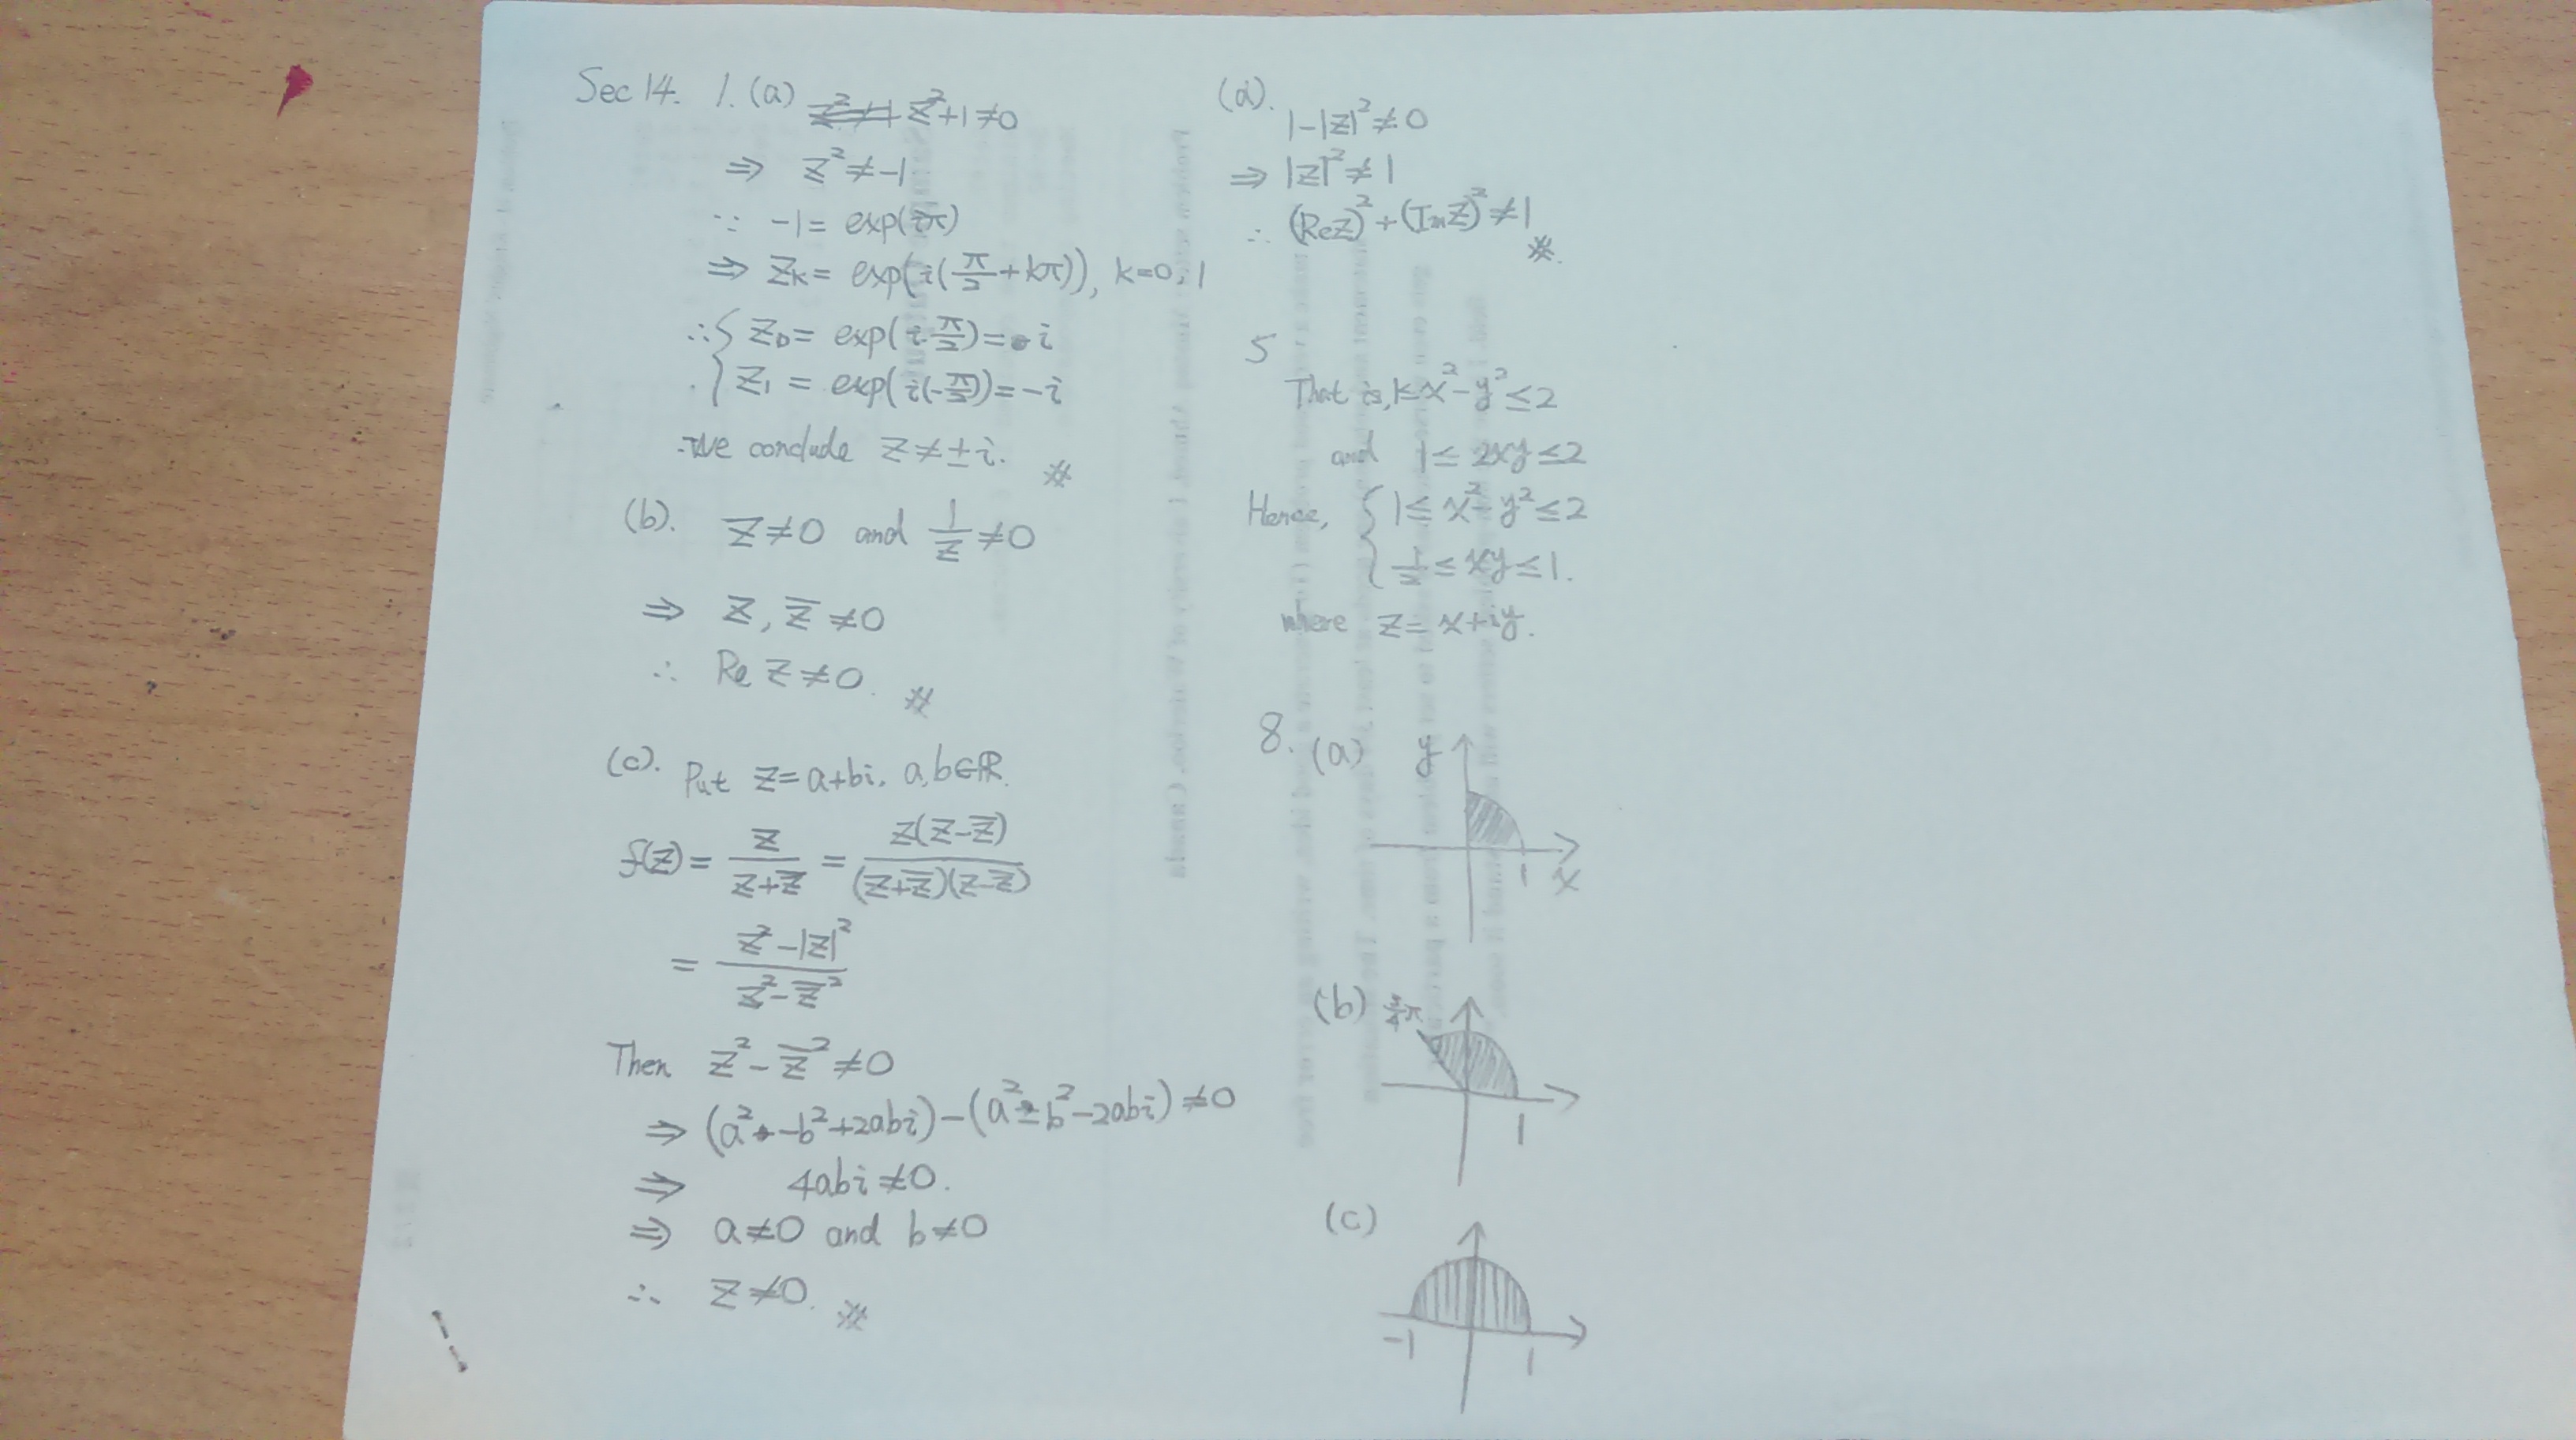 Sec 14. 1. (a) z²+1≠0
⇒ z²≠-1
∵ -1= exp(iπ)
⇒ Zk= exp(i(π/2+kπ)), k=0,1
∴{ Z0= exp(i π/2)= i
Z1 = exp(i(-π/2))=-i
We conclude z≠±i. #
(b). z≠0 and 1/z≠0
⇒ z, z̅ ≠0
∴ Re z≠0. #
(c). Put z=a+bi, a,b∈ℝ.
f(z)= z/(z+z̅) = z(z-z̅)/((z+z̅)(z-z̅))
= (z²-|z|²)/(z²-z̅²)
Then z²-z̅²≠0
⇒ (a²-b²+2abi)-(a²-b²-2abi)≠0
⇒ 4abi≠0.
⇒ a≠0 and b≠0
∴ z≠0. #
(d).
1-|z|²≠0
⇒ |z|²≠1
∴ (Rez)²+(Imz)²≠1 #
5
That is, 1≤x²-y²≤2
and 1≤ 2xy≤2
Hence, { 1≤ x²-y²≤2
1/2≤ xy≤1.
where z=x+iy.
8. (a) y
1 x
(b) 3/4π
1
(c)
-1 1